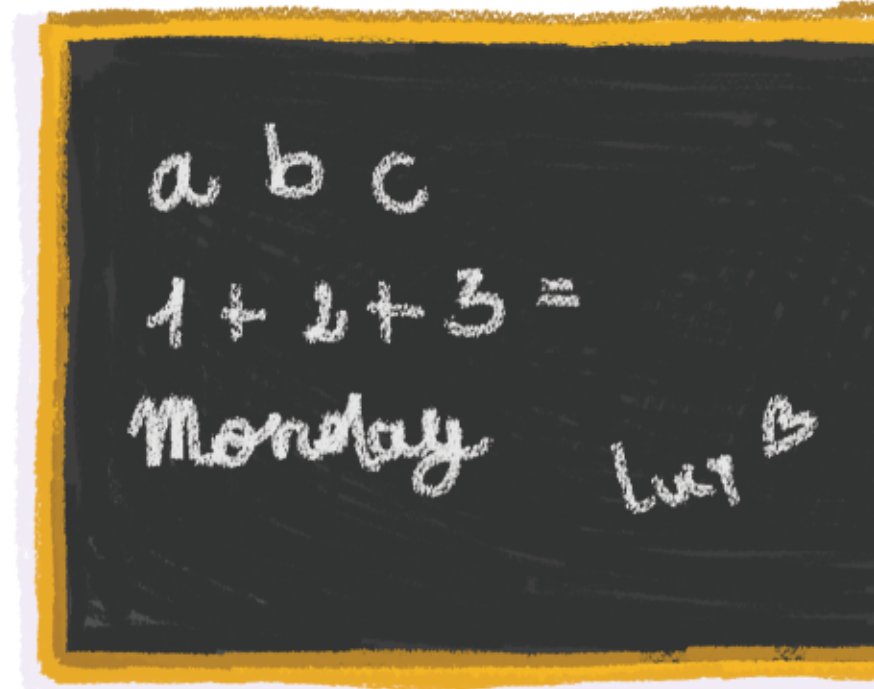 a b c
1 + 2 + 3 =
Monday
lucy